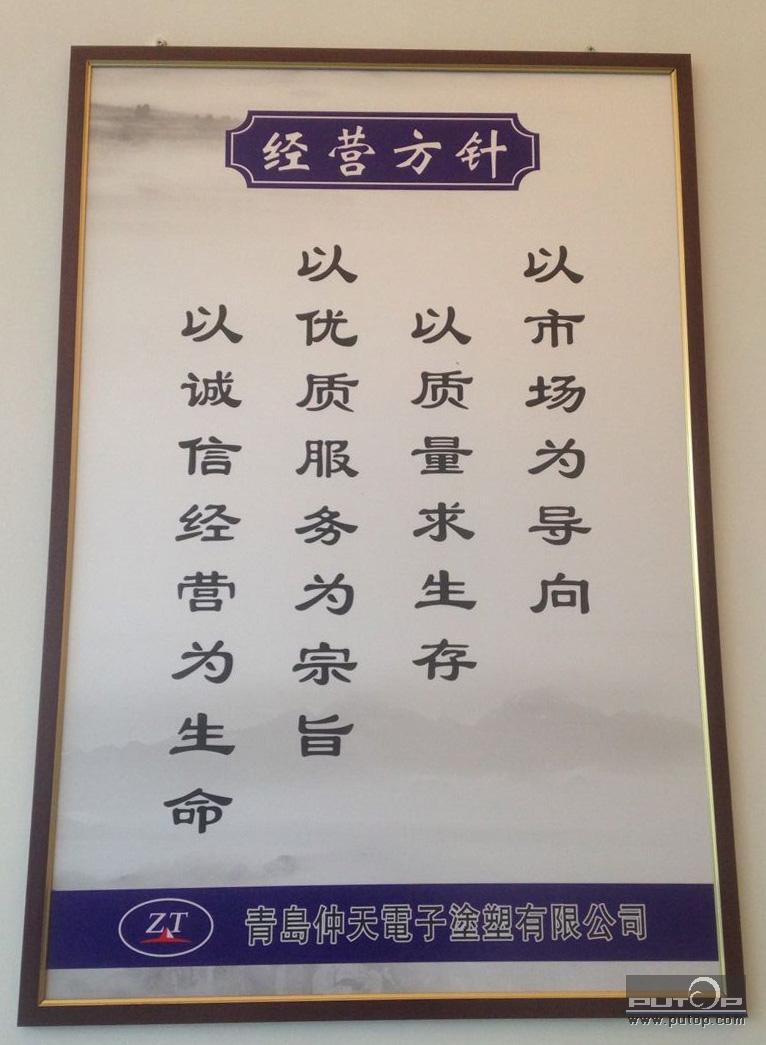 经营方针
以市场为导向
以质量求生存
以优质服务为宗旨
以诚信经营为生命
ZT
青島仲天電子塗塑有限公司
PUTOP
www.putop.com